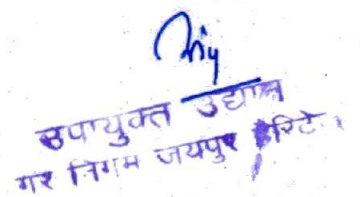 उपायुक्त उद्यान
गर निगम जयपुर